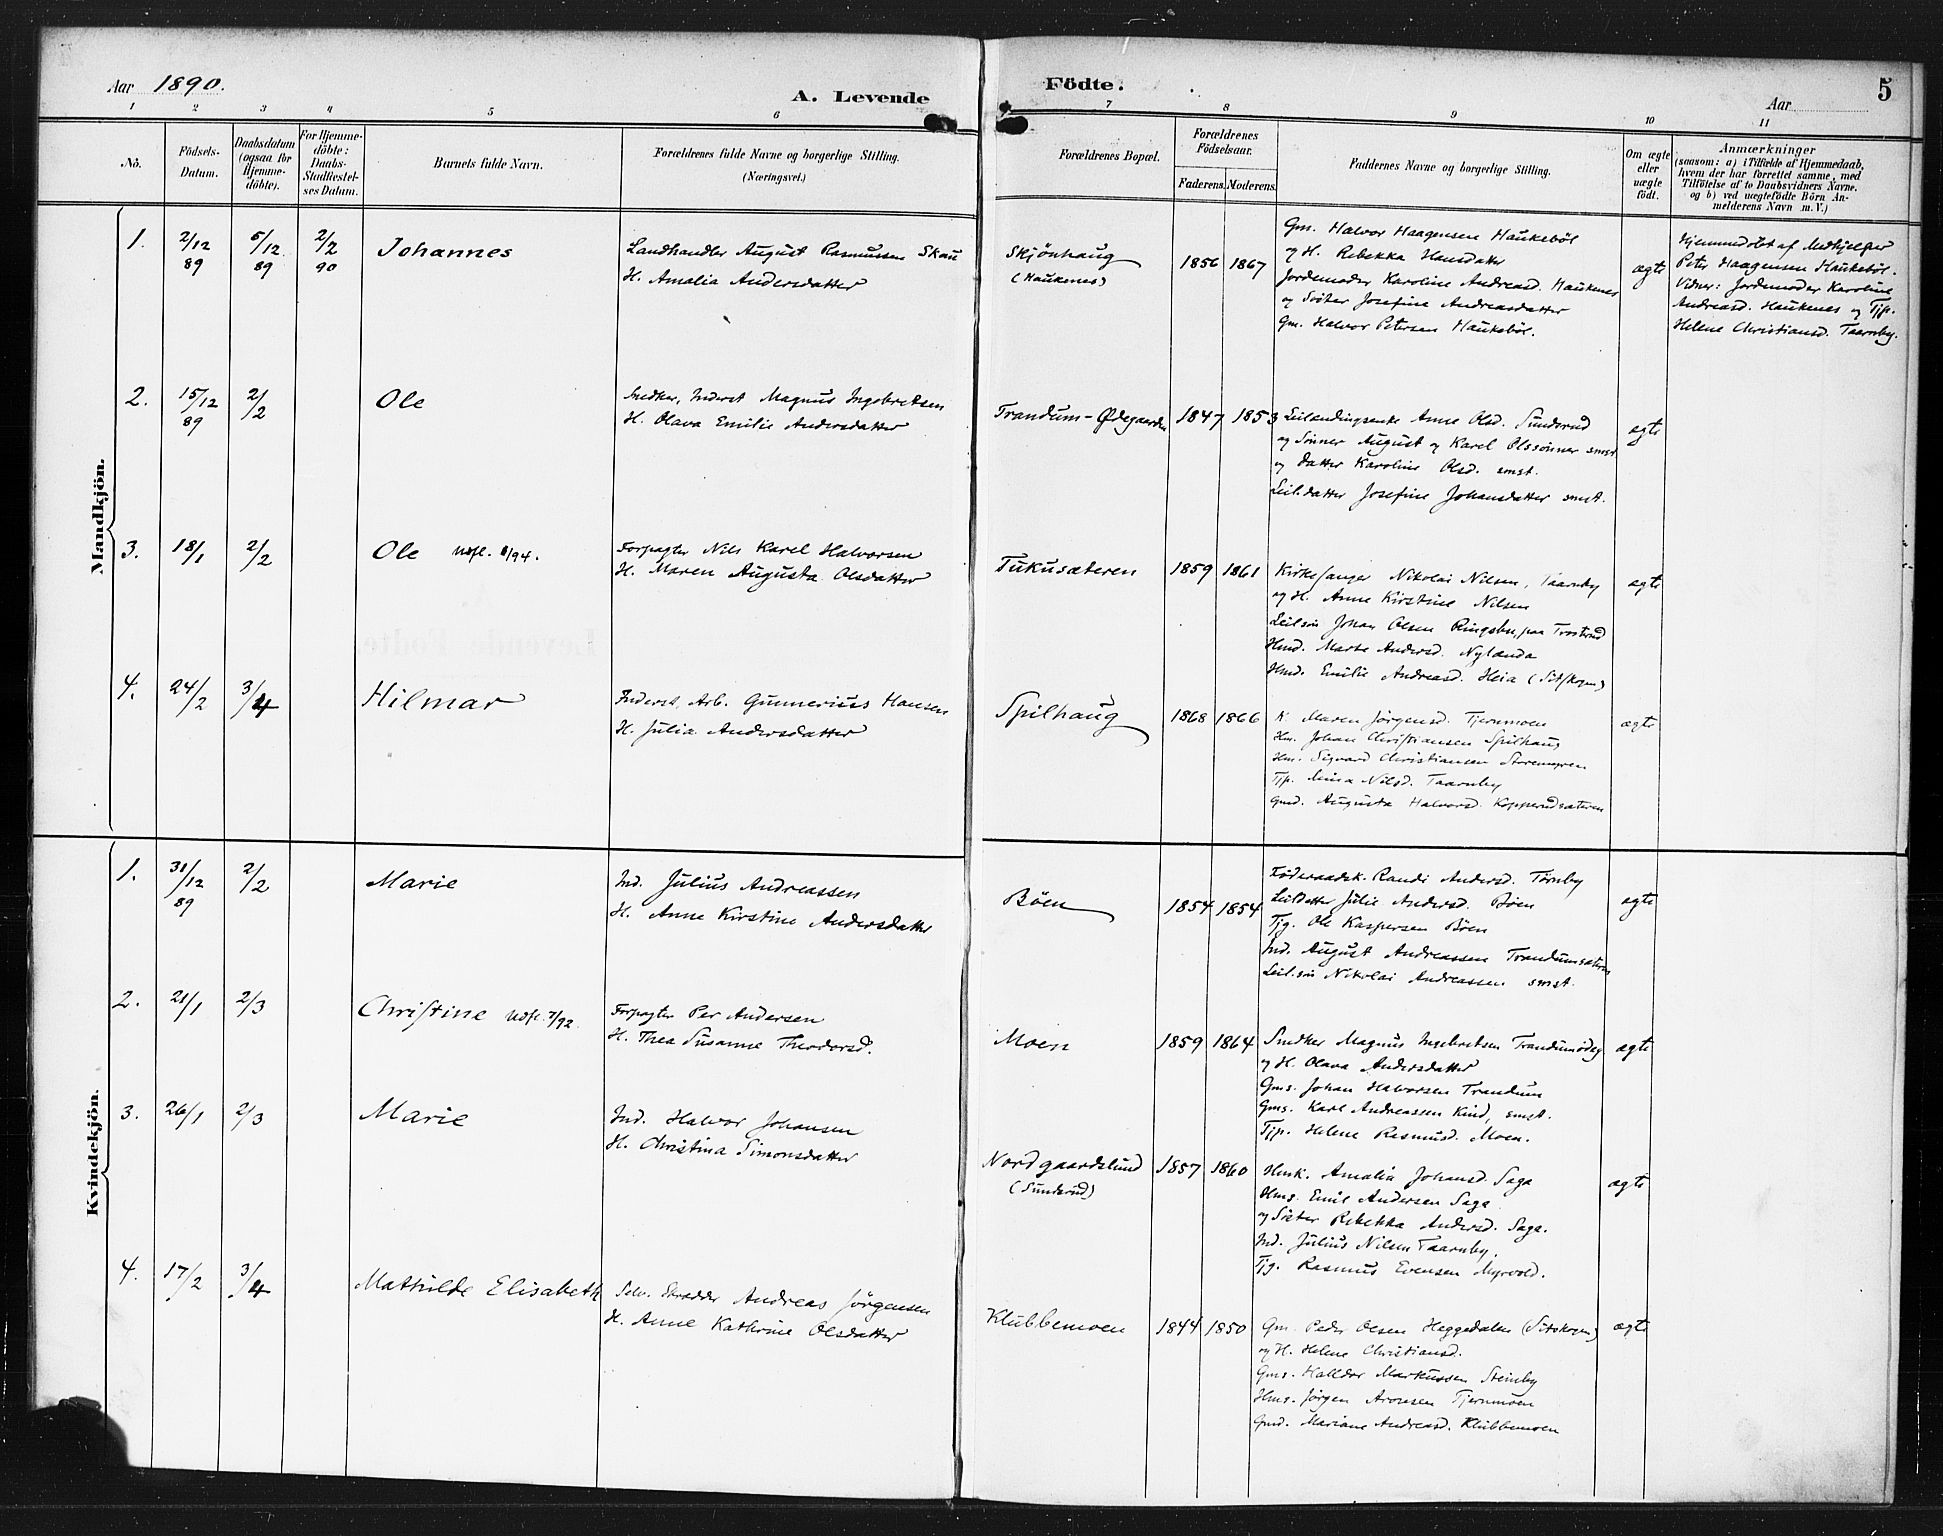 Aar 1890.
A. Levende
Födte.
Aar
5
1 2 3 4 5 6 7 8 9 10 11
No.
Födsels-Datum.
Daabsdatum (ogsaa for Hjemme-döbte).
For Hjemme-döbte: Daabs-Stadfæstel-ses Datum.
Barnets fulde Navn.
Forældrenes fulde Navne og borgerlige Stilling.
(Næringsvei.)
Forældrenes Bopæl.
Forældrenes Födselsaar.
Faderens. Moderens.
Faddernes Navne og borgerlige Stilling.
Om ægte eller uægte födt.
Anmærkninger
(saasom: a) i Tilfælde af Hjemmedaab,
hvem der har forrettet samme, med
Tilföielse af to Daabsvidners Navne.
og b) ved uægtefödte Börn An-
melderens Navn m. V.)
Mandkjön.
1. 2/12 89 5/12 89 2/2 90 Johannes
Landhandler August Rasmussen Skau
H. Amalia Andersdatter
Skjönhaug
(Haukenes)
1856 1867
Gm. Halvor Haagensen Haukeböl
og H. Rebekka Hansdatter
Jordemoder Karoline Andreasd. Haukenes
og Söster Josefine Andreasdatter
Gm. Halvor Petersen Hauksböl.
ægte
Hjemmedöbt af Medhjelper
Peter Haagensen Haukeböl.
Vidner: Jordemoder Karoline
Andreasd. Haukenes og Tjp.
Helene Christiansd. Taarnby.
2. 15/12 89 2/2 Ole
Snedker, Inderst Magnus Ingebretsen
H. Olava Emilie Andersdatter
Trandum-Ødegaarden
1847 1853
Leilændingsenke Anne Olsd. Sunderud
og Sönner August og Karel Olssönner smst
og Datter Karoline Olsd. smst.
Leil.datter Josefine Johansdatter smst.
ægte
3. 18/1 2/2 Ole Udfl. /94.
Forpagter Nils Karel Halvorsen
H. Maren Augusta Olsdatter
Tukusæteren
1859 1861
Kirkesanger Nikolai Nilsen, Taarnby
og H. Anne Kirstine Nilsen
Leilsön Johan Olsen Ringsby, paa
Hmd. Marte Andersd. Nylænda
Hmd. Emilie Andreasd. Heia (Sitskogen)
ægte
4. 24/2 3/4 Hilmar
Inderst, Arb. Gunnerius Hansen
H. Julia Andersdatter
Spilhaug
1868 1866
K. Maren Jörgensd. Tjernmoen
Hm. Johan Christiansen Spilhaug
Hm. Sigvard Christiansen Storemyren
Tjp. Mina Nilsd. Taarnby
Gmd. Augusta Halvorsd. Kopperudsæteren
ægte
Kvindekjön.
1. 31/12 89 2/2 Marie
Ind. Julius Andreassen
H. Anne Kirstine Andersdatter
Böen
1854 1854
Föderaadsk. Randi Andersd. Törnby
Leildatter Julie Andersd. Böen
Tjg. Ole Kaspersen Böen
Ind. August Andreassen Trandumsæteren
Leil.sön Nikolai Andreassen smst.
ægte
2. 21/1 2/3 Christine Udfl. 7/92.
Forpagter Per Andersen
H. Thea Susanne Theodorsd.
Moen
1859 1864
Snedker Magnus Ingebretsen Trandumödeg
og H. Olava Andersdatter
Gms. Johan Halvorsen Trandum
Gms. Karl Andreassen Kind, smst.
Tjp. Helene Rasmusd. Moen.
ægte
3. 26/1 2/3 Marie
Ind. Halvor Johansen
H. Christina Simonsdatter
Nordgaardslund
(Sunderud)
1857 1860
Husk. Amalia Johansd. Saga
Hms. Emil Andersen Saga
og Söster Rebekka Andersd. Saga.
Ind. Julius Nilsen Taarnby.
Tjg. Rasmus Evensen Myrvold.
ægte
4. 17/2 3/4 Mathilde Elisabeth
Selv. Skrædder Andreas Jörgensen
H. Anne Kathrine Olsdatter
Klubbemoen
1844 1850
Gm. Peder Olsen Heggedalen (Sitskogen)
og H. Helene Christiansd.
Gms. Halldor Markussen Steinby
Hms. Jörgen Aronsen Tjernmoen
Gmd. Mariane Andreasd. Klubbemoen
ægte